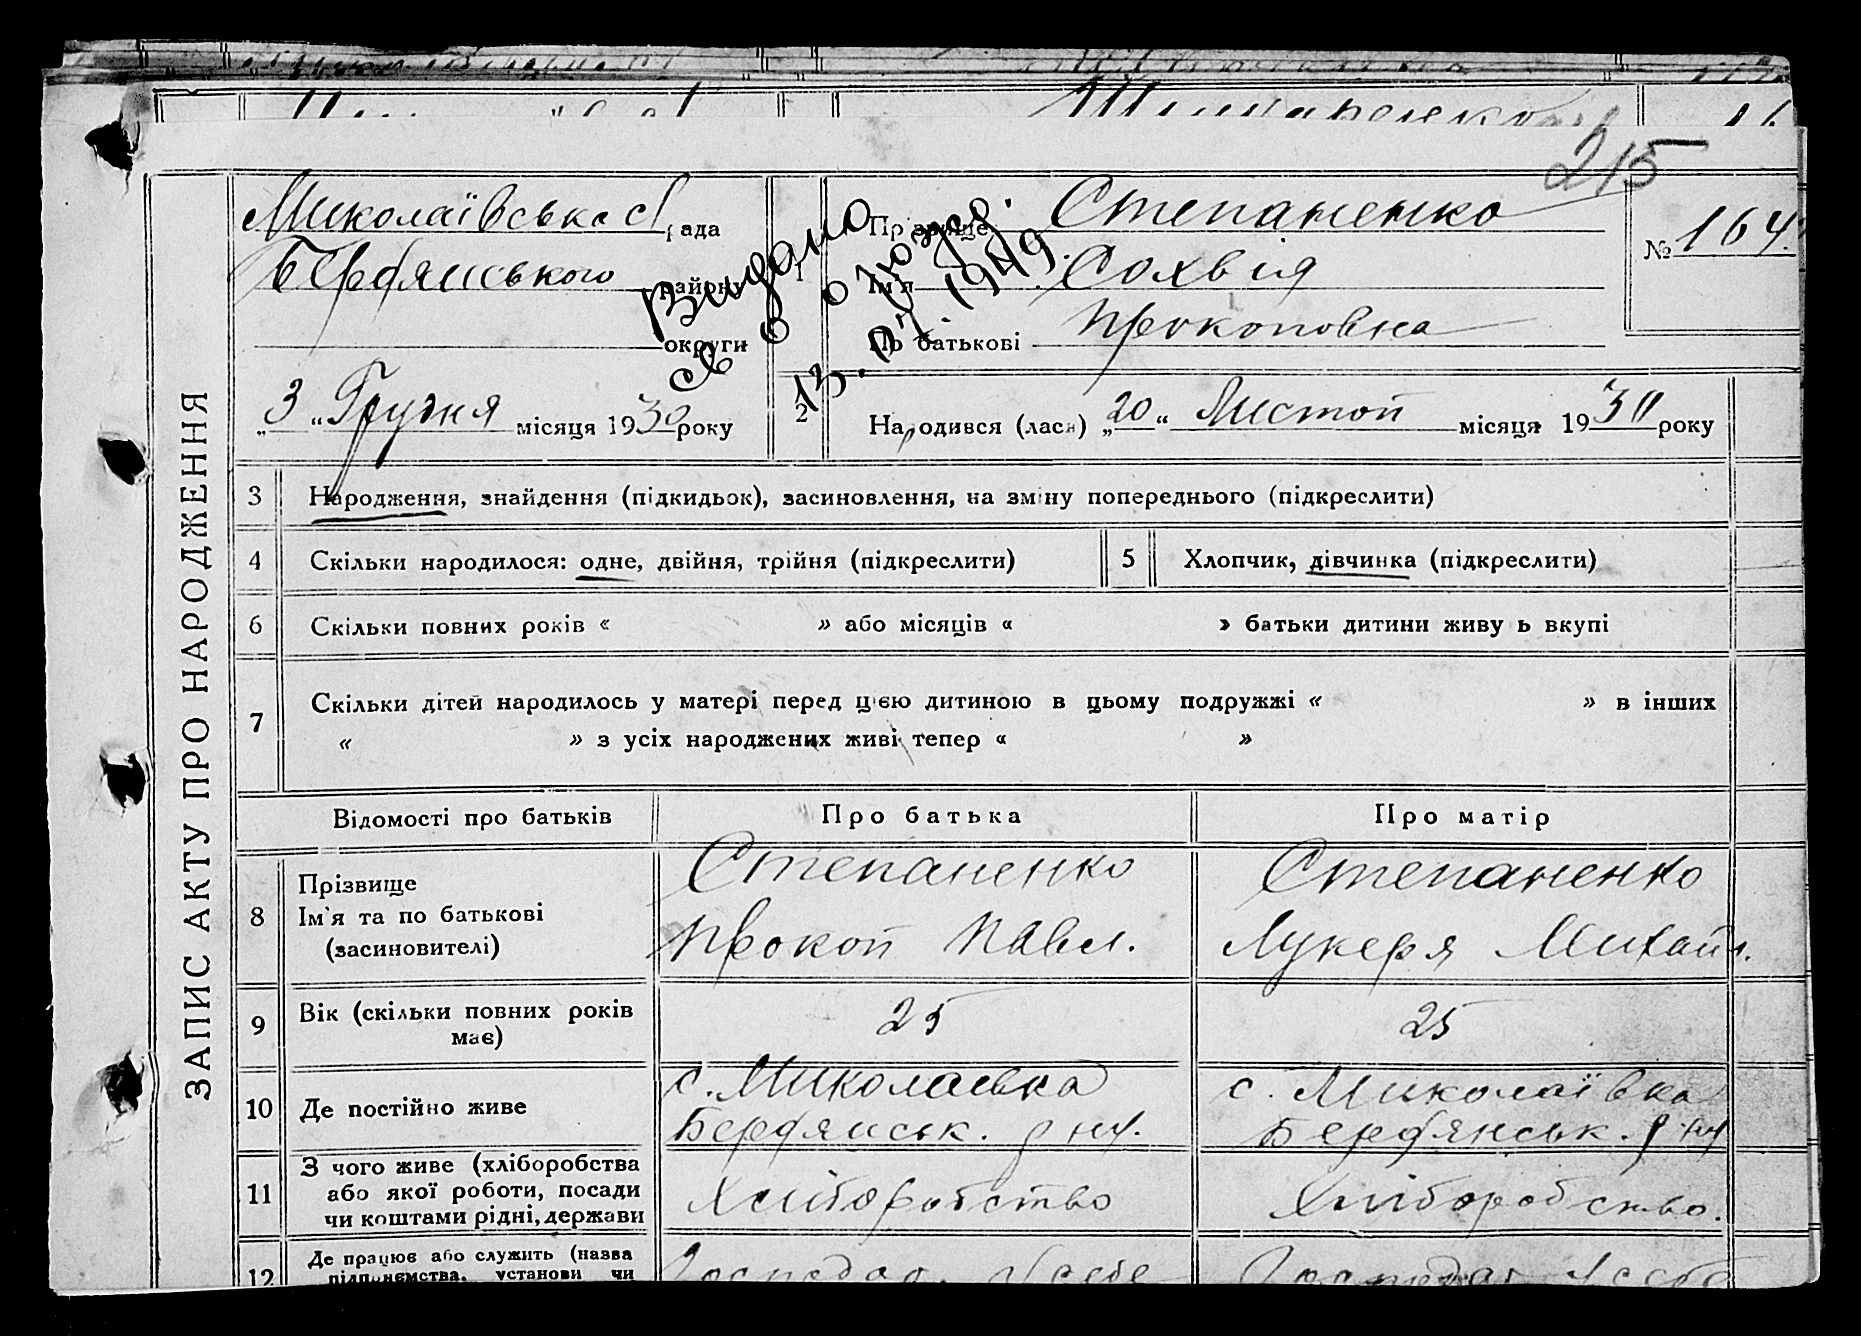 215
ЗАПИС АКТУ ПРО НАРОДЖЕННЯ
Миколаївська с/рада
Бердянського району
округи
"3" Грудня місяця 1930 року
Видано
св о рожд.
13.07.1949
1
Прізвище Степаненко
Ім'я Сохвія
По батькові Прокоповна
№ 164.
2
Народився (лась) "20" Листоп місяця 1930 року
3 Народження, знайдення (підкидьок), засиновлення, на зміну попереднього (підкреслити)
4 Скільки народилося: одне, двійня, трійня (підкреслити)
5 Хлопчик, дівчинка (підкреслити)
6 Скільки повних років « » або місяців « » батьки дитини живу ь вкупі
7 Скільки дітей народилось у матері перед цією дитиною в цьому подружжі « » в інших
« » з усіх народжених живі тепер « »
Відомості про батьків Про батька Про матір
8 Прізвище
Ім'я та по батькові
(засиновителі)
Степаненко
Прокоп Павл.
Степаненко
Лукеря Михайл.
9 Вік (скільки повних років
має)
25
25
10 Де постійно живе
с. Миколаевка
Бердянськ. рну.
с. Миколаївка
Бердянськ. рну
11 З чого живе (хліборобства
або якої роботи, посади
чи коштами рідні, держави
Хліборобство
Хліборобство.
12 Де працює або служить (назва
підприємства, установи чи
Господар. Усебе
Господар Усебе